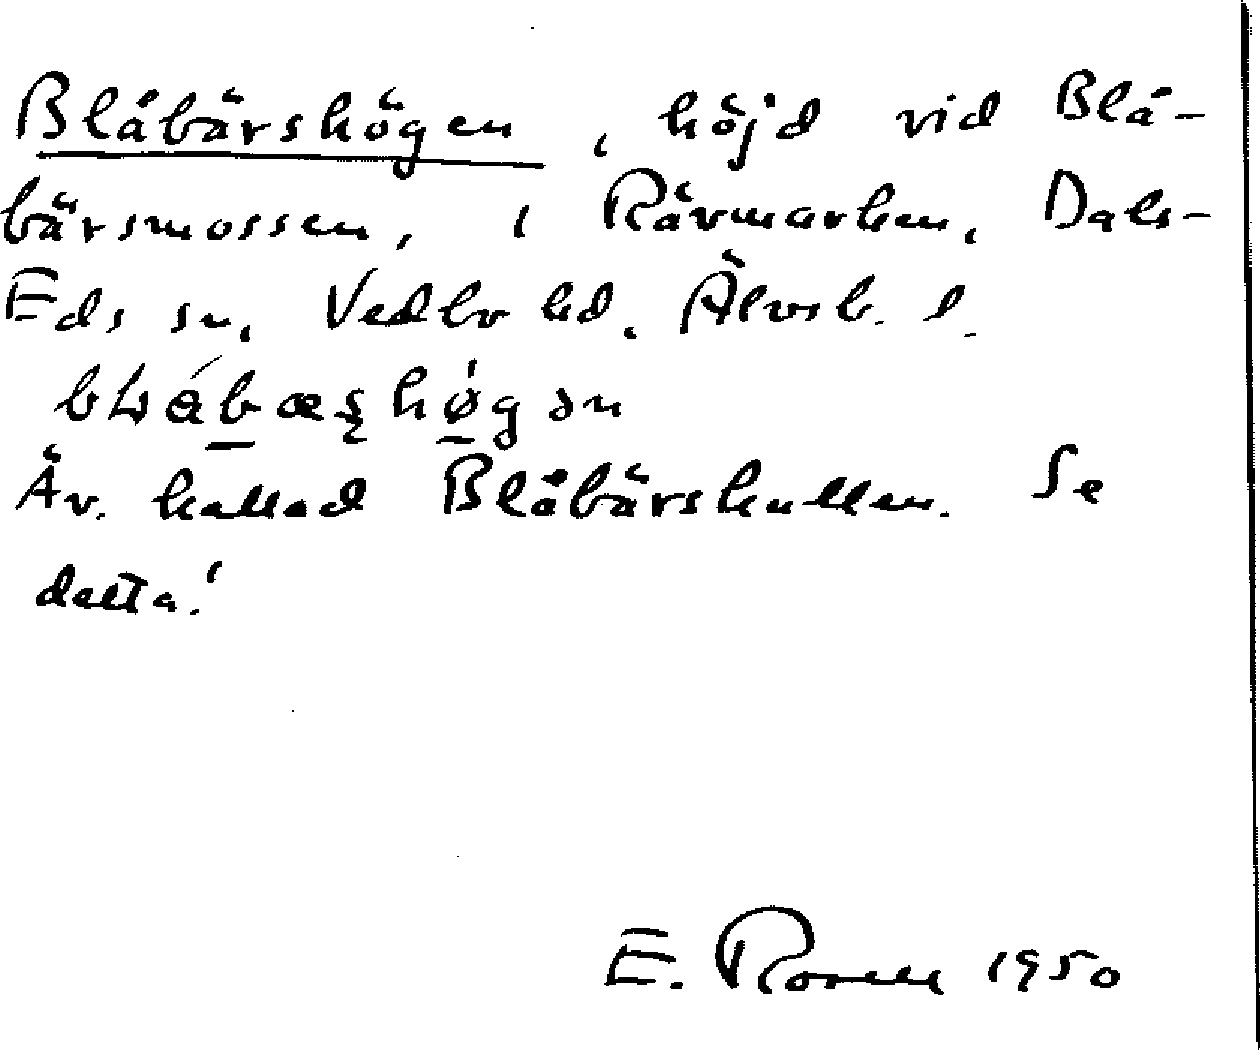 Blåbärshögen, höjd vid Blå-
bärsmossen, i Rävmarken, Dals-
Eds sn, Vedbo hd. Älvsb. l.
Äv. kallad Blåbärskullen. Se
detta!
E. 1950